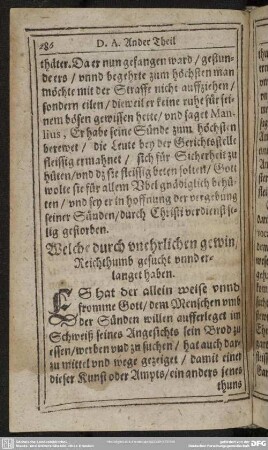 186 D. A. Ander Theil
thäter. Da er nun gefangen ward / gestun-
de ers / vnnd begehrte zum höchsten man
möchte mit der Straffe nicht auffziehen /
sondern eilen / dieweil er keine ruhe für sei-
nem bösen gewissen hette / vnd saget Man-
lius, Er habe seine Sünde zum höchsten
berewet / die Leute bey der Gerichtsstelle
fleissig ermahnet / sich für Sicherheit zu
hüten / vnd dz sie fleissig beten solten / Gott
wolte sie für allem Vbel gnädiglich behü-
ten / vnd sey er in hoffnung der vergebung
seiner Sünden / durch Christi verdienst se-
lig gestorben.
Welche durch vnehrlichen gewin,
Reichthumb gesucht vnnd er-
langet haben.
ES hat der allein weise vnnd
fromme Gott / dem Menschen vmb
der Sünden willen aufferleget im
Schweiß seines Angesichts sein Brod zu
essen / werben vnd zu suchen / hat auch dar-
zu mittel vnd wege gezeiget / damit einer
dieser Kunst oder Ampts / ein anders jenes
thuns